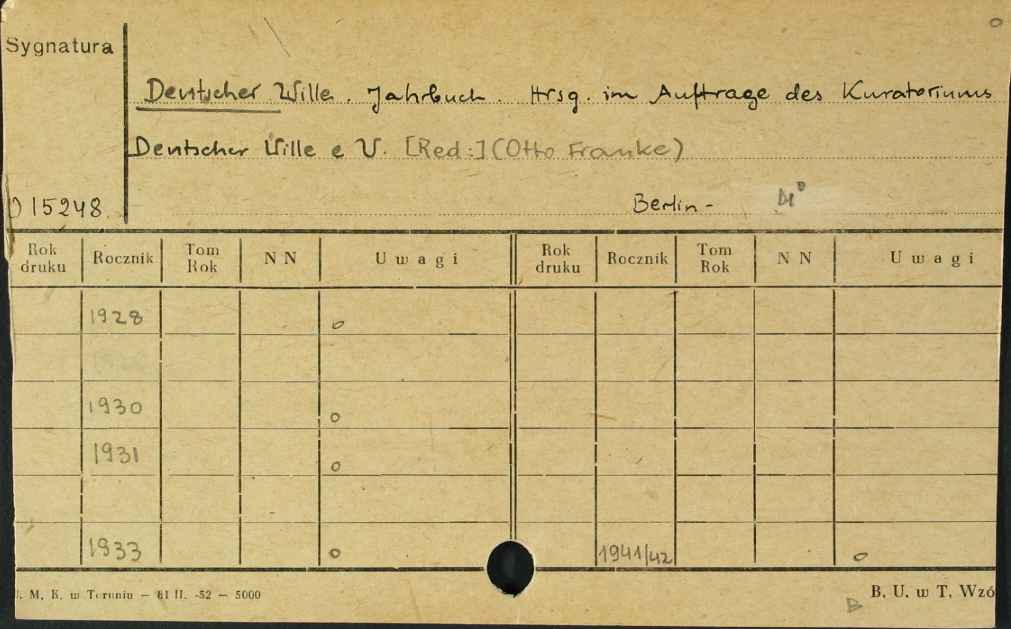 Sygnatura
Deutscher Wille. Jahrbuch. Hrsg. im Auftrage des Kuratoriums
Deutscher Wille e V. [Red:] (Otto Franke)
15248 Berlin -
Rok druku Rocznik Tom Rok N N Uwagi Rok druku Rocznik Tom Rok N N Uwagi
1928 o
1930 o
1931 o
1933 o 1941/42 o
M. K. w Toruniu — 81 II. -52 — 5000 B. U. w T. Wzó